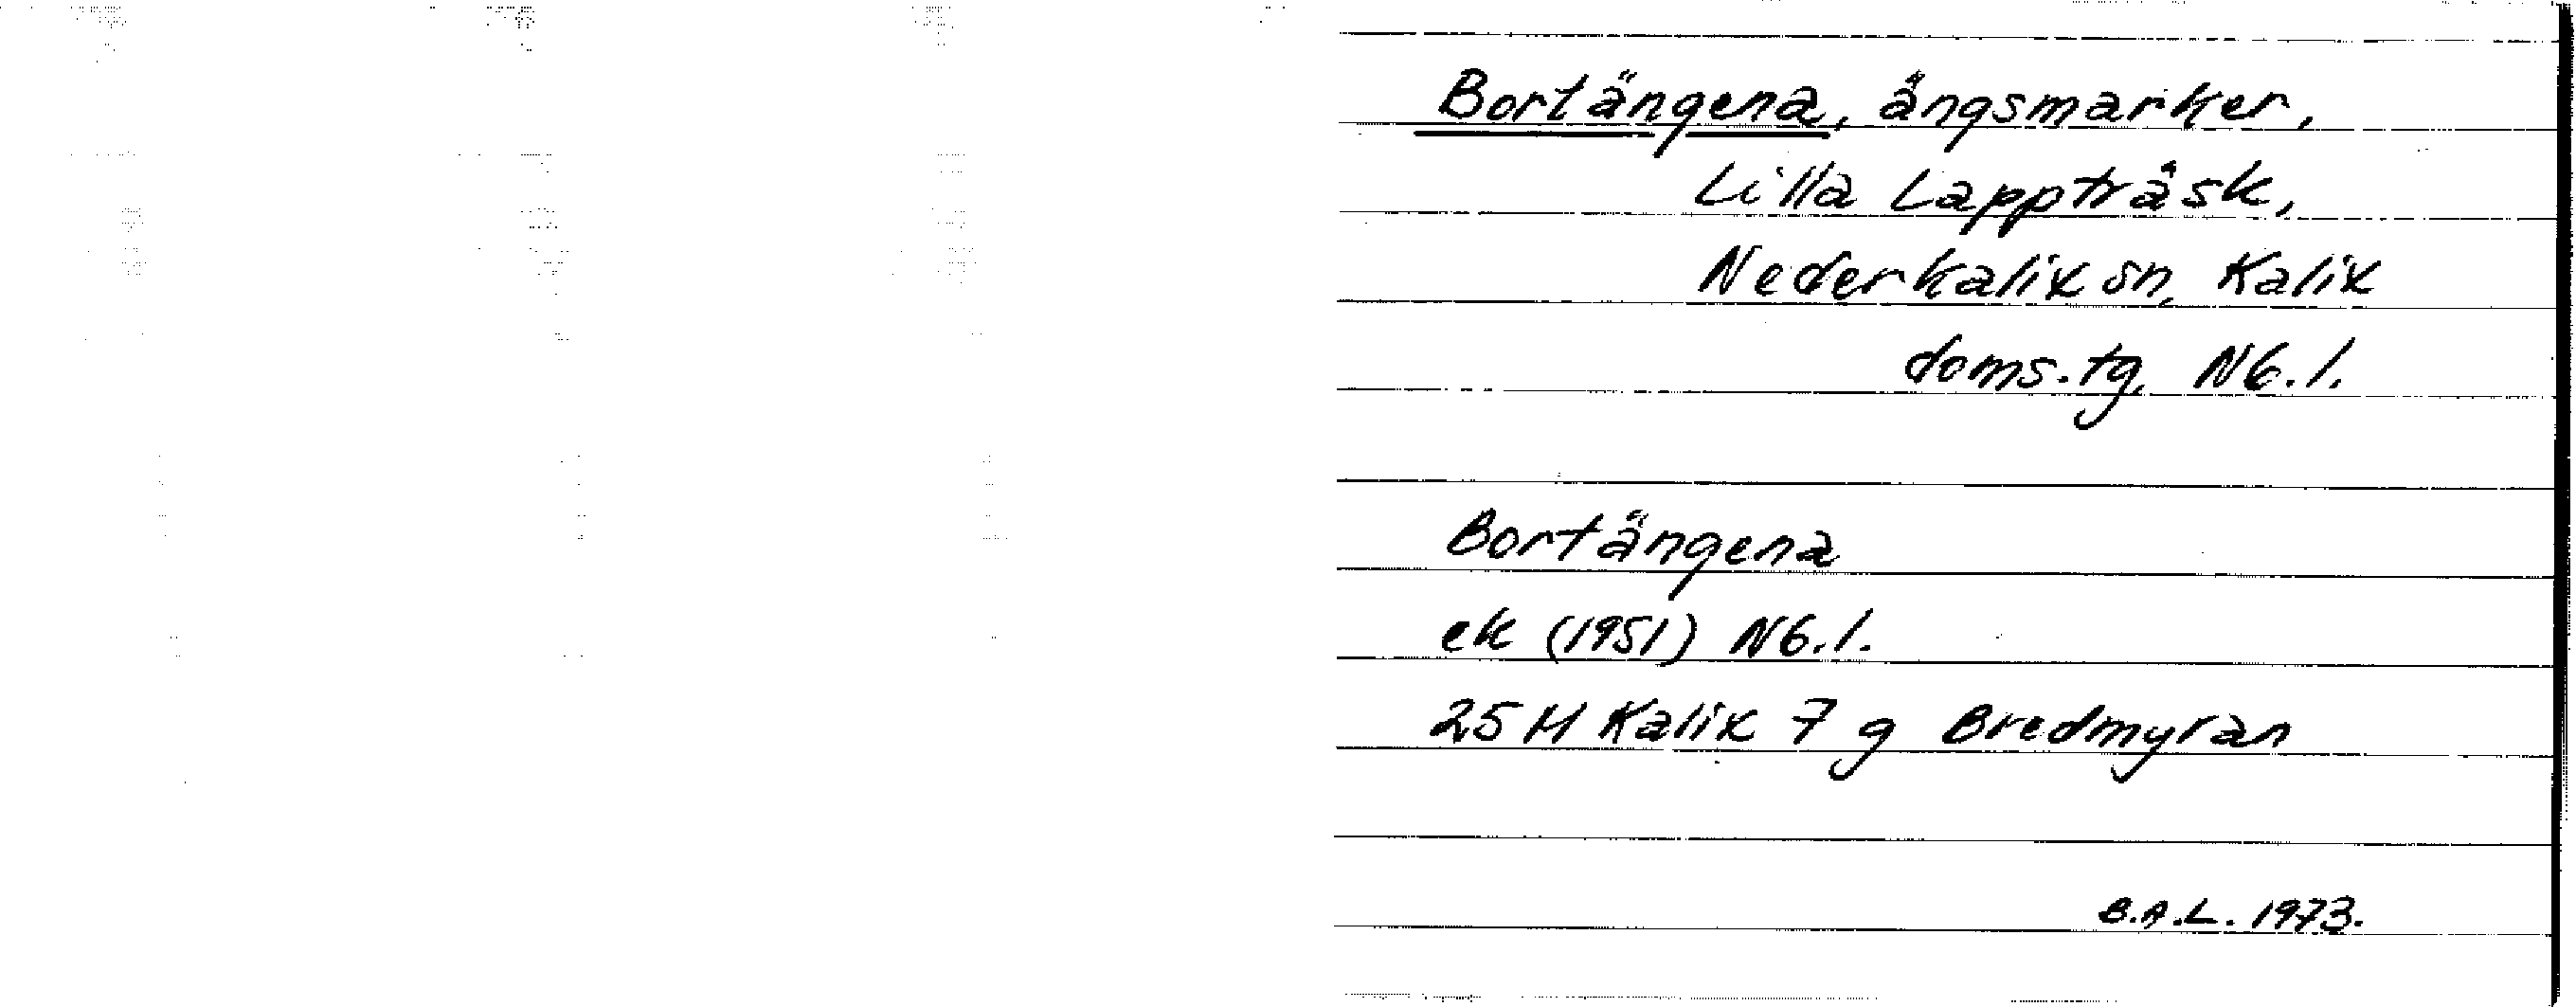 Bortängena, ängsmarker,
Lilla Lappträsk,
Nederkalix sn, Kalix
doms. tg, Nb. l.
Bortängena
ek (1951) Nb. l.
25 M Kalix 7 g Bredmyran
B.A.L. 1973.